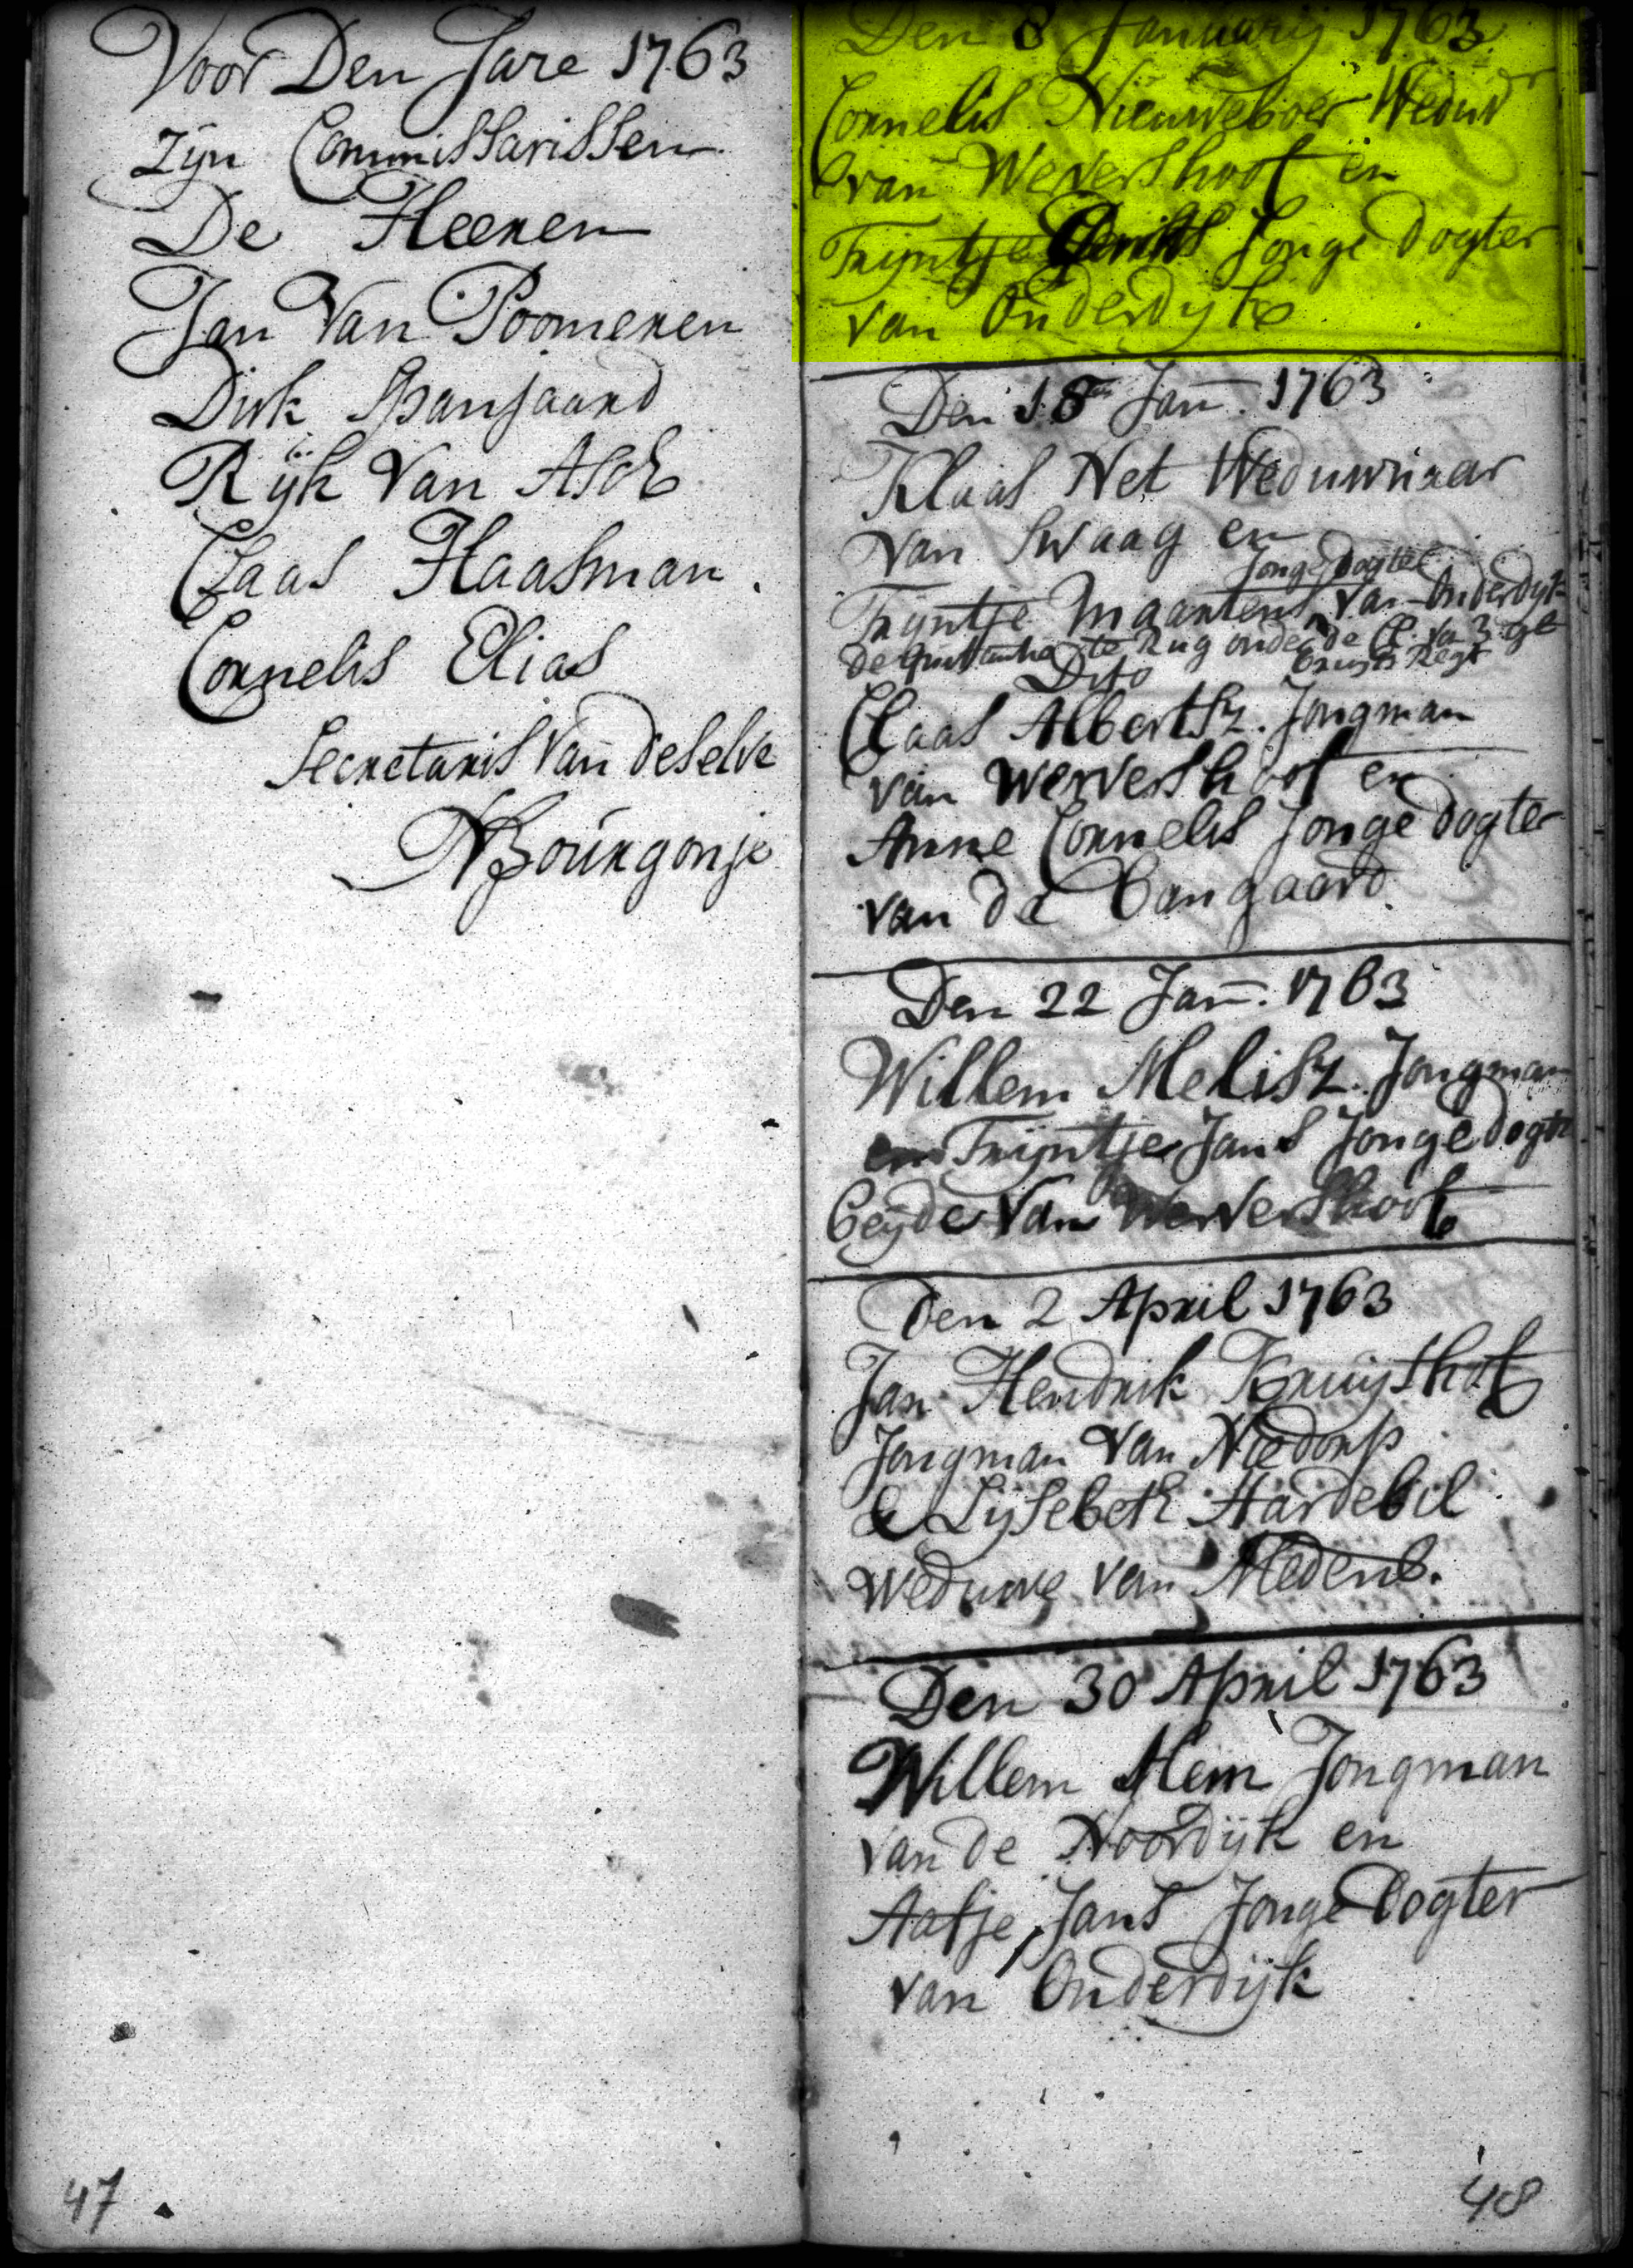 Voor Den Jare 1763
zijn Commissarissen
De Heeren
Jan Van Poomeren
Dirk Spanjaard
Rijk Van Asch
Claas Haasman.
Cornelis Elias
Secretaris Van deselve
NBourgonje
47
Den 8 Januarij 1763
Cornelis Nieuweboer Weduwr
van Wervershoof en
Trijntje Gerrits Jonge Dogter
van Onderdijk
Den 18 Jan. 1763
Klaas Net Weduwnaar
van Swaag en
Jonge Dogter
Trijntje Maartens van Onderdyk
de te Rug onder de
Dito
Claas Albertsz. Jongman
van Wervershoof en
Anne Cornelis Jonge dogter
van de Bangaard
Den 22 Jan. 1763
Willem Melisz. Jongman
en Trijntje Jans Jonge dogtr
beyde van Wervershoof
Den 2 April 1763
Jan Hendrik Kruijshof
Jongman van Niedorp
& Lijsebeth Hardebil
Weduwe van Medenb.
Den 30 April 1763
Willem Hein Jongman
van de Noordijk en
Aafje Jans Jonge Dogter
van Onderdijk
48